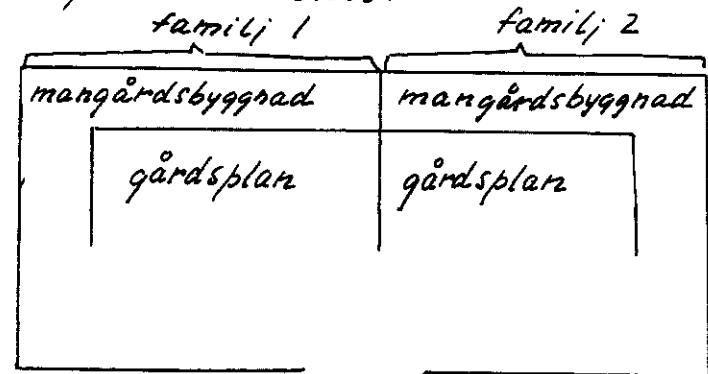 familj 1 familj 2
mangårdsbyggnad mangårdsbyggnad
gårdsplan gårdsplan